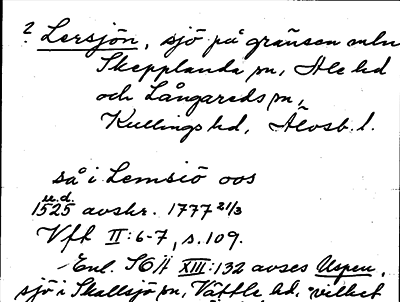 ? Lersjön, sjö på gränsen mln
Skepplanda sn, Ale hd
och Långareds sn,
Kullings hd, Älvsb. l.
så i Lemsiö oos
u.d.
1525 avskr. 1777 21/3
Vfk II:6-7, s. 109.
Enl. SOÄ XIII:132 avses Uspen,
sjö i Skallsjö sn, Vättle hd, vilket